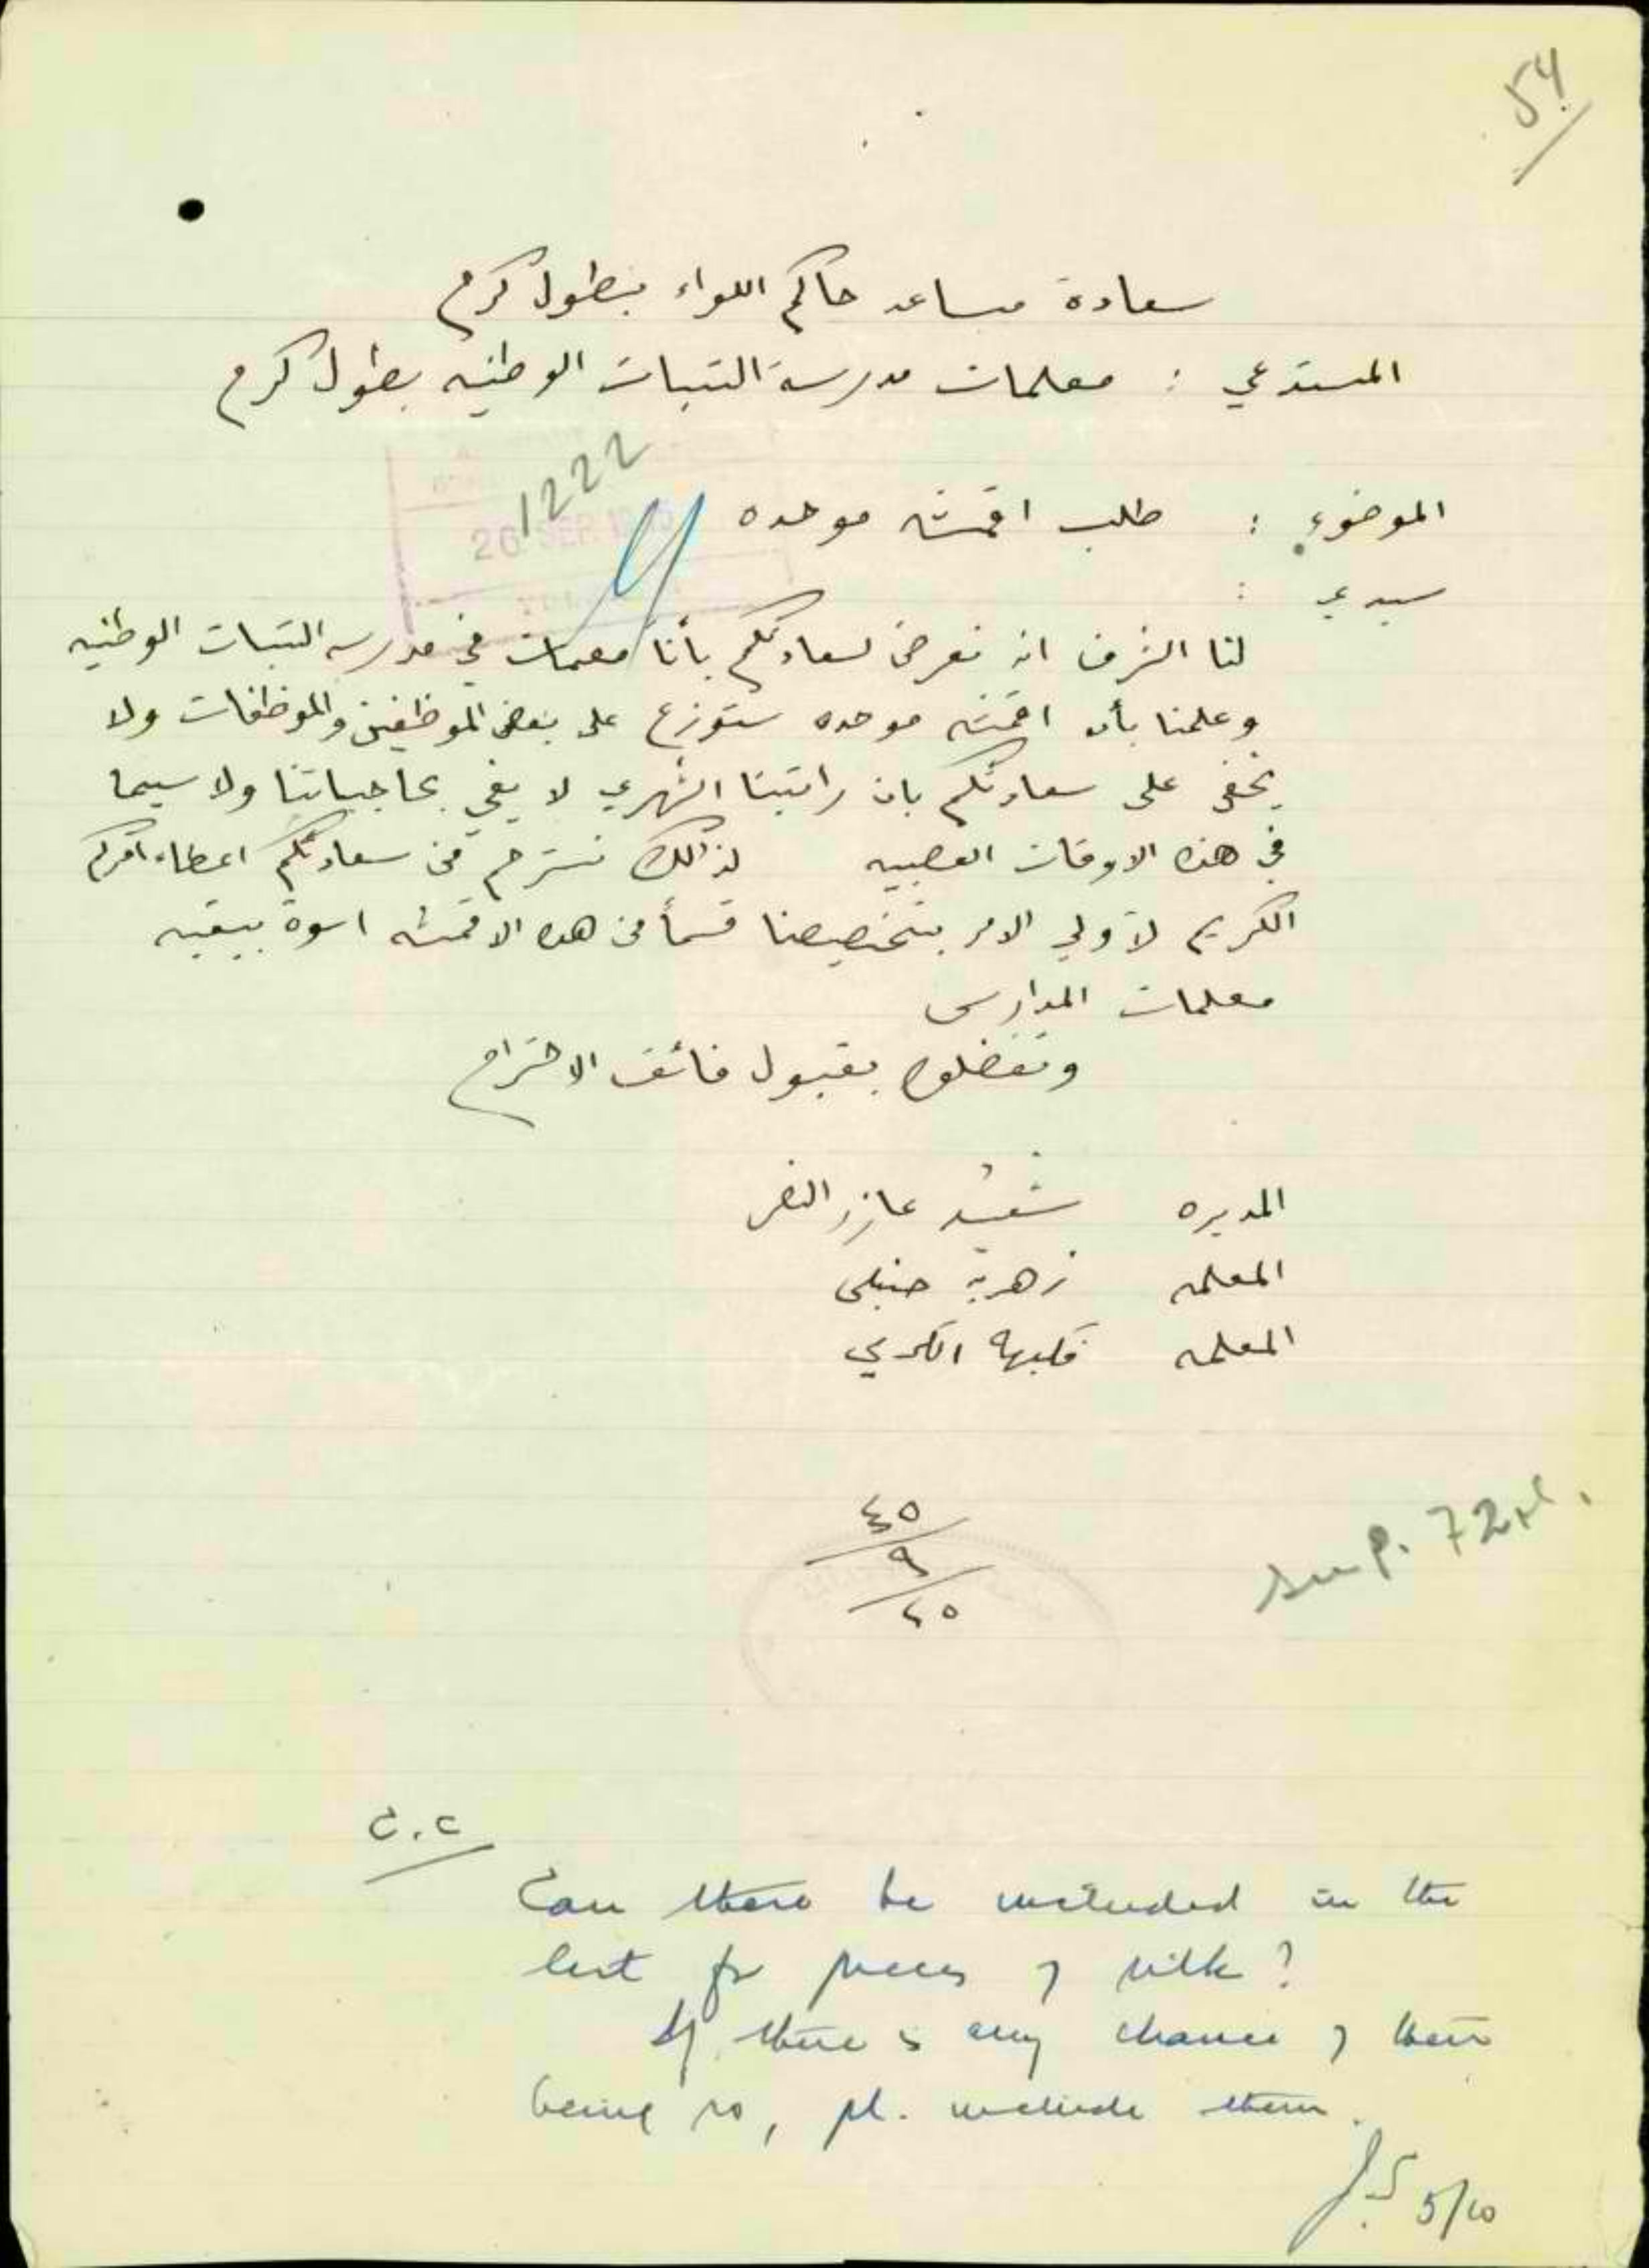 54
سعادة مساعد حاكم اللواء بطولكرم
المستدعي : معلمات مدرسة البنات الوطنيه بطولكرم
1222
26 SEP
الموضوع : طلب اقمشه موحده
سيدي :
لنا الشرف ان نعرض لسعادتكم بأننا معلمات في مدرسه البنات الوطنيه
وعلمنا بأن اقمشه موحده ستوزع على بعض الموظفين والموظفات ولا
يخفى على سعادتكم بان راتبنا الشهري لا يفي بحاجياتنا ولا سيما
في هذه الاوقات العصيبه لذالك نسترحم من سعادتكم اعطاء امركم
الكريم لأولي الامر بتخصيصنا قسماً من هذه الاقمشه اسوة ببقيه
معلمات المدارس
وتفضلوا بقبول فائق الاحترام
المديره عازر النمر
المعلمه زهرية حنبلي
المعلمه الكرمي
٤٥
٩
٢٥
72
C.C
Can these be included in the
list for pieces of silk?
If there is any chance of their
being so, pl. include them.
J.S 5/10